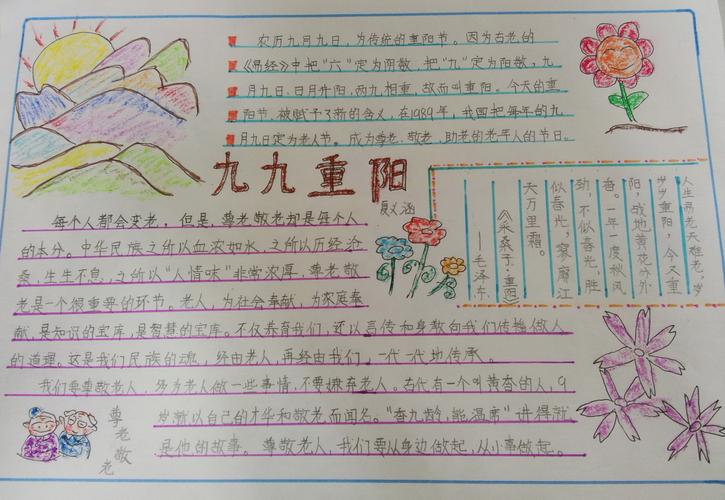 农历九月九日，为传统的重阳节。因为古老的
《易经》中把"六"定为阴数，把"九"定为阳数，九
月九日，日月并阳，两九相重，故而叫重阳。今天的重
阳节，被赋予了新的含义，在1989年，我国把每年的九
月九日定为老人节。成为尊老、敬老、助老的老年人的节日。
九九重阳
夏义涵
人生易老天难老，岁
岁重阳，今又重
阳，战地黄花分外
香。一年一度秋风
劲，不似春光，胜
似春光，寥廓江
天万里霜。
《采桑子·重阳》
——毛泽东
每个人都会变老，但是，尊老敬老却是每个人
的本分。中华民族之所以血浓如水，之所以历经沧
桑，生生不息，之所以"人情味"非常浓厚，尊老敬
老是一个很重要的环节。老人，为社会奉献，为家庭奉
献，是知识的宝库，是智慧的宝库。不仅养育我们，还以言传和身教向我们传播做人
的道理。这是我们民族的魂，经由老人，再经由我们，一代一代地传承。
我们要尊敬老人，多为老人做一些事情，不要嫌弃老人。古代有一个叫黄香的人，9
岁就以自己的才华和敬老而闻名。"香九龄，能温席"讲得就
是他的故事。尊敬老人，我们要从身边做起，从小事做起。
尊老敬老